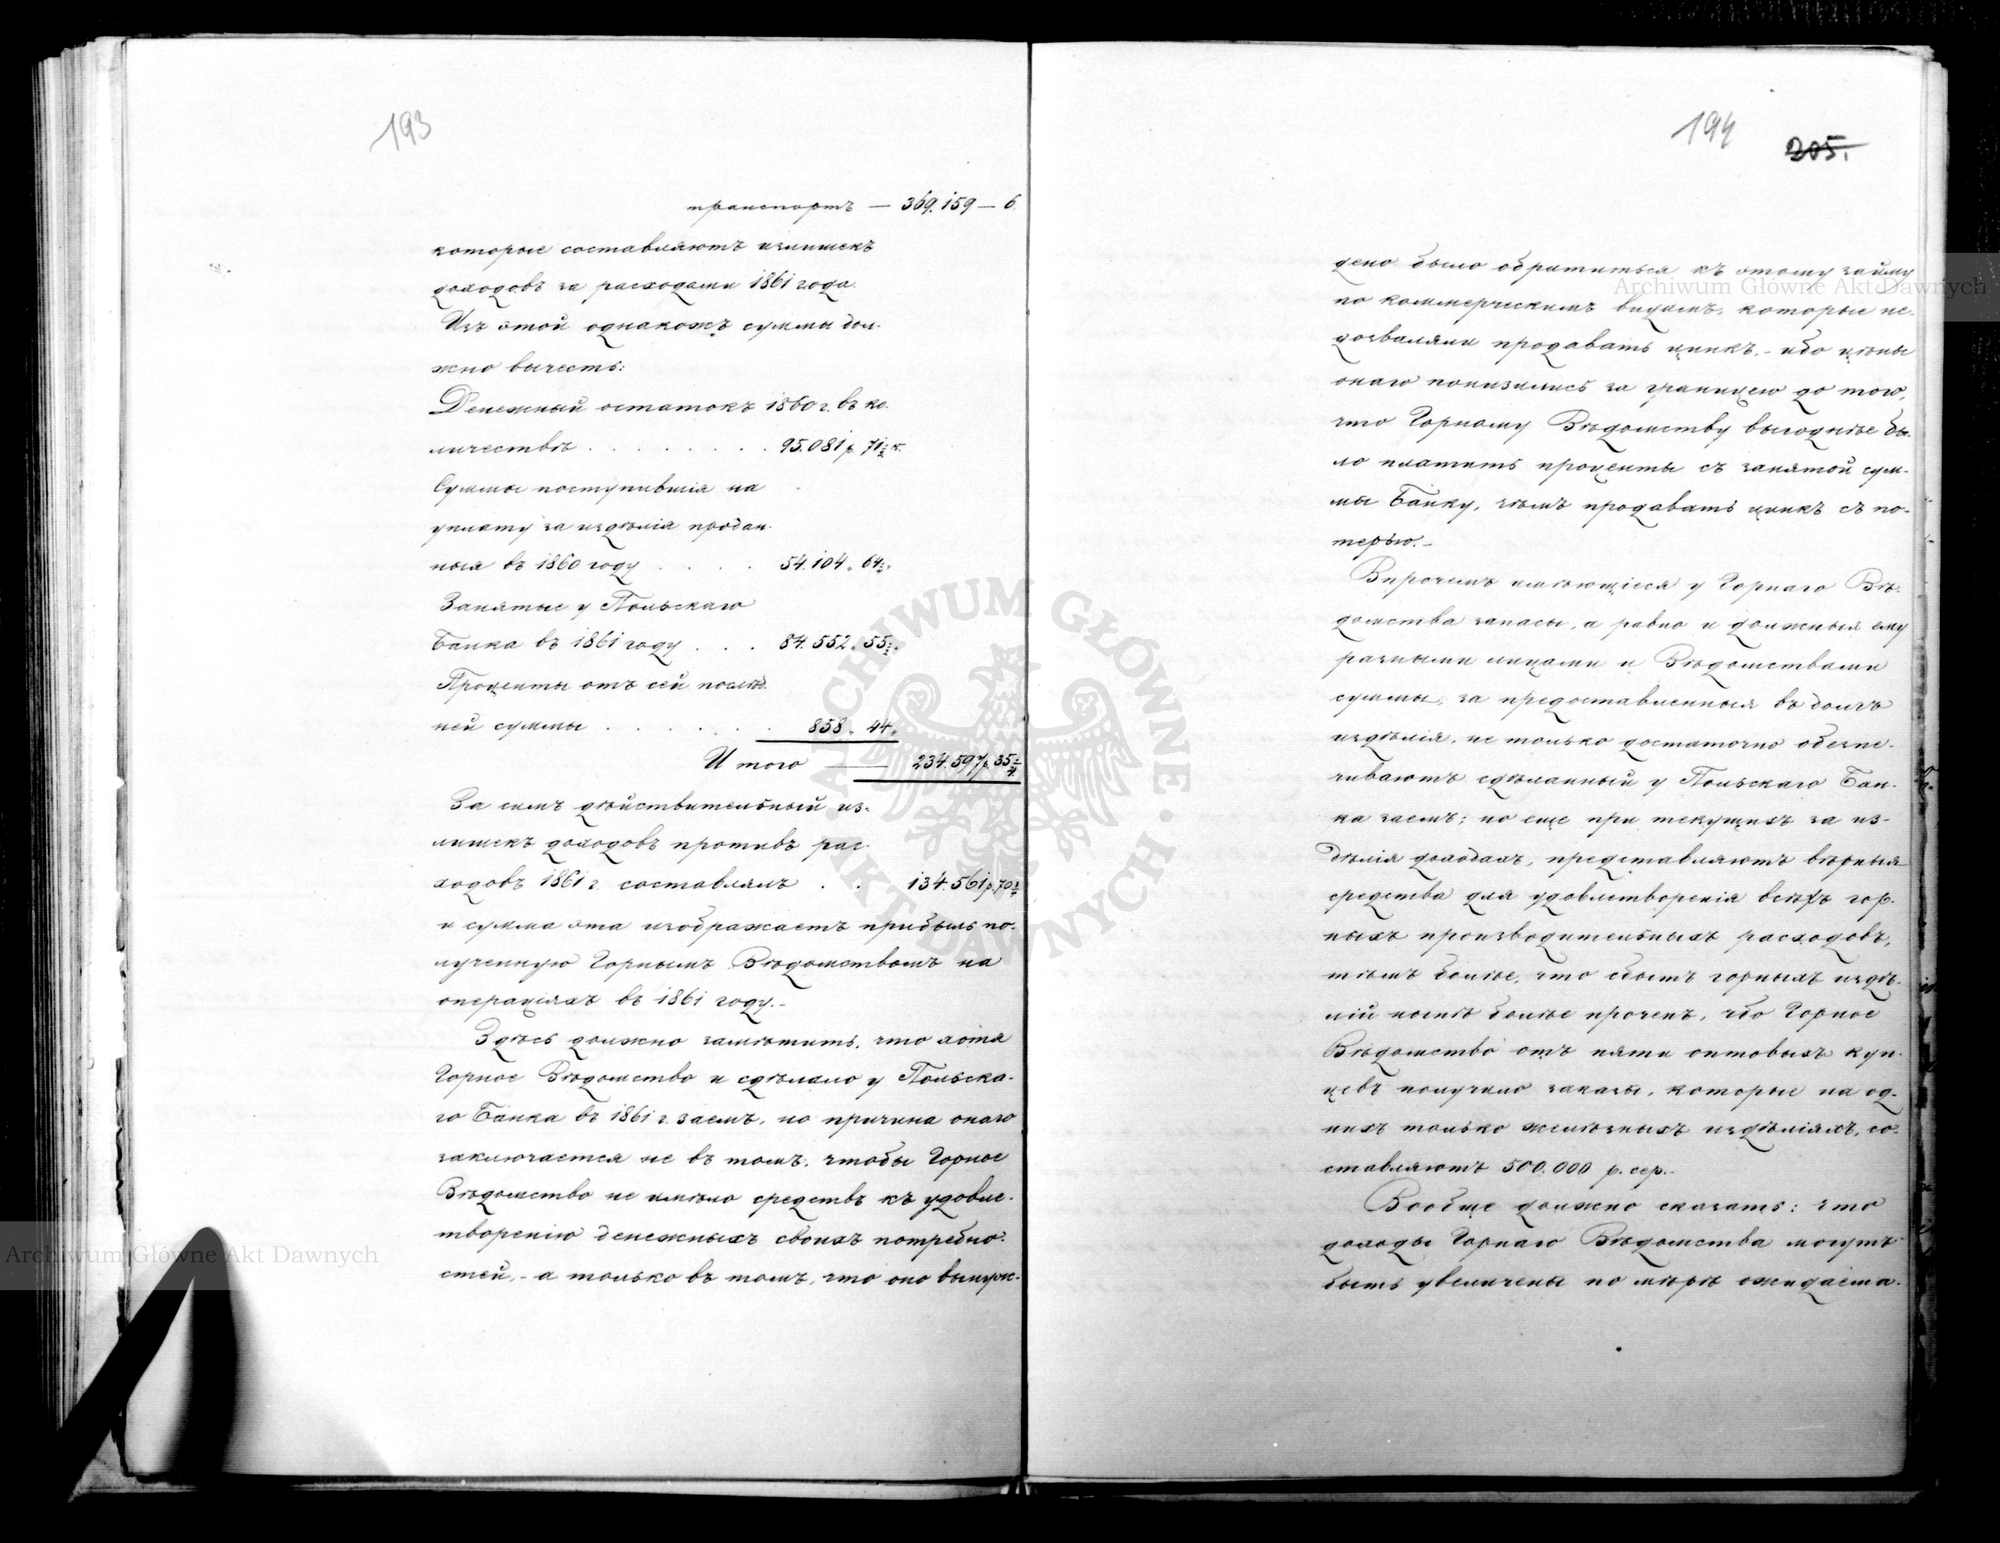 193
транспортъ — 369.159 — 6
которые составляютъ излишекъ
доходовъ за расходами 1861 года.
Изъ этой однакожъ суммы дол-
жно вычесть:
Денежный остатокъ 1860 г. въ ко-
личествѣ . . . . . . . 95.081 р. 71½ к.
Суммы поступившія на
уплату за издѣлія продан-
ныя въ 1860 году . . . . 54.104 „ 64
Занятые у Польскаго
Банка въ 1861 году . . . 84.552 „ 55
Проценты отъ сей послѣд-
ней суммы . . . . . . 858 „ 44 „
Итого — 234.597 р. 35
За симъ дѣйствительный из-
лишекъ доходовъ противъ рас-
ходовъ 1861 г. составлялъ . . 134.561 р. 70
и сумма эта изображаетъ прибыль по-
лученную Горнымъ Вѣдомствомъ на
операціяхъ въ 1861 году.–
Здѣсь должно замѣтить, что хотя
Горное Вѣдомство и сдѣлало у Польска-
го Банка въ 1861 г. заемъ, но причина онаго
заключается не въ томъ, чтобы Горное
Вѣдомство не имѣло средствъ къ удовле-
творенію денежныхъ своихъ потребно-
стей,– а только въ томъ, что оно вынуж-
194 205.
дено было обратиться къ этому займу
по коммерческимъ видамъ, которые не-
дозволяли продавать цинкъ,– ибо цѣны
онаго понизились за границею до того,
что Горному Вѣдомству выгоднѣе бы-
ло платить проценты съ занятой сум-
мы Банку, чѣмъ продавать цинкъ съ по-
терью.–
Впрочемъ имѣющіеся у Горнаго Вѣ-
домства запасы, а равно и должныя ему
разными лицами и Вѣдомствами
суммы, за предоставленныя въ долгъ
издѣлія, не только достаточно обезпе-
чиваютъ сдѣланный у Польскаго Бан-
ка заемъ; но еще при текущихъ за из-
дѣлія доходахъ, представляютъ вѣрныя
средства для удовлетворенія всѣхъ гор-
ныхъ производительныхъ расходовъ,
тѣмъ болѣе, что сбытъ горныхъ издѣ-
лій нынѣ болѣе проченъ, ибо Горное
Вѣдомство отъ пяти оптовыхъ куп-
цевъ получило заказы, которые на од-
нихъ только желѣзныхъ издѣліяхъ, со-
ставляютъ 500.000 р. сер.–
Вообще должно сказать: что
доходы Горнаго Вѣдомства могутъ
быть увеличены по мѣрѣ ожидаема-
Archiwum Główne Akt Dawnych
Archiwum Główne Akt Dawnych
ARCHIWUM GŁÓWNE · AKT DAWNYCH ·